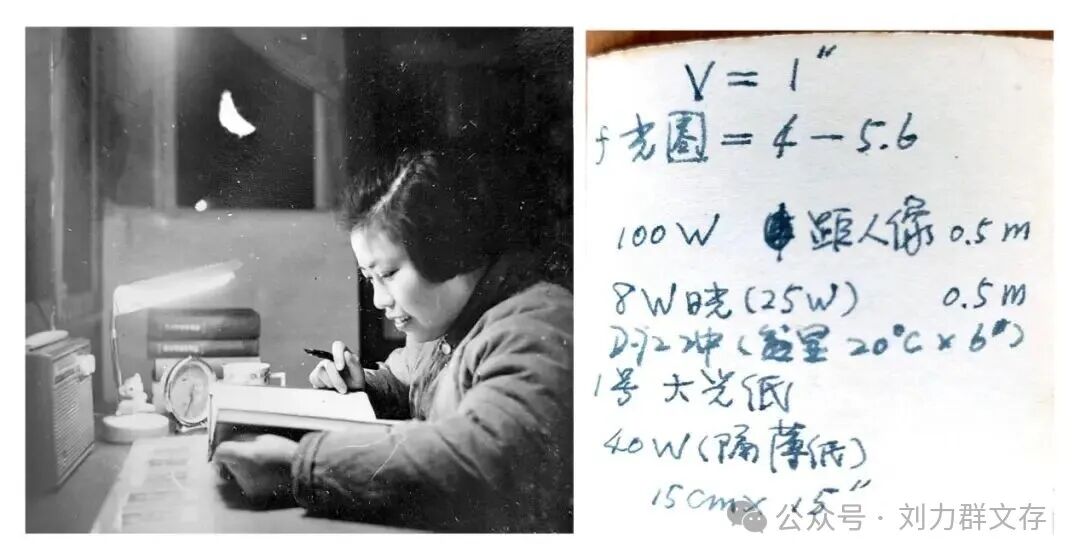 V = 1"
f光圈 = 4 - 5.6
100W 距人像 0.5m
8W日光(25W) 0.5m
D-72冲(盆显 20°C × 6")
1号大光纸
40W(隔薄纸)
15cm × 15"
公众号 · 刘力群文存